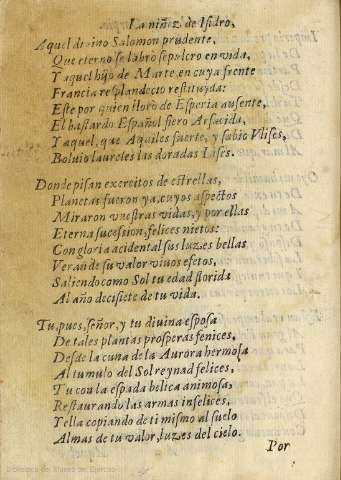 La niñez de Isidro,
Aquel diuino Salomon prudente,
Que eterno se labrò sepulcro en vida,
Y aquel hijo de Marte, en cuya frente
Francia resplandecio restituyda:
Este por quien lloró de Esperia ausente,
El bastardo Español fiero Arsacida,
Y aquel, que Aquiles fuerte, y sabio Vlises,
Boluio laureles las doradas Lises.
Donde pisan exercitos de estrellas,
Planetas fueron ya, cuyos aspectos
Miraron vuestras vidas, y por ellas
Eterna sucession, felices nietos:
Con gloria acidental sus luzes bellas
Veran de su valor viuos efetos,
Saliendo como Sol tu edad florida
Al año decisiete de tu vida.
Tu, pues, señor, y tu diuina esposa
De tales plantas prosperas fenices,
Desde la cuna de la Aurora hermosa
Al tumulo del Sol reynad felices,
Tu con la espada belica animosa,
Restaurando las armas infelices,
Y ella copiando de ti mismo al suelo
Almas de tu valor, luzes del cielo.
Por
Biblioteca de Museo del Ejército